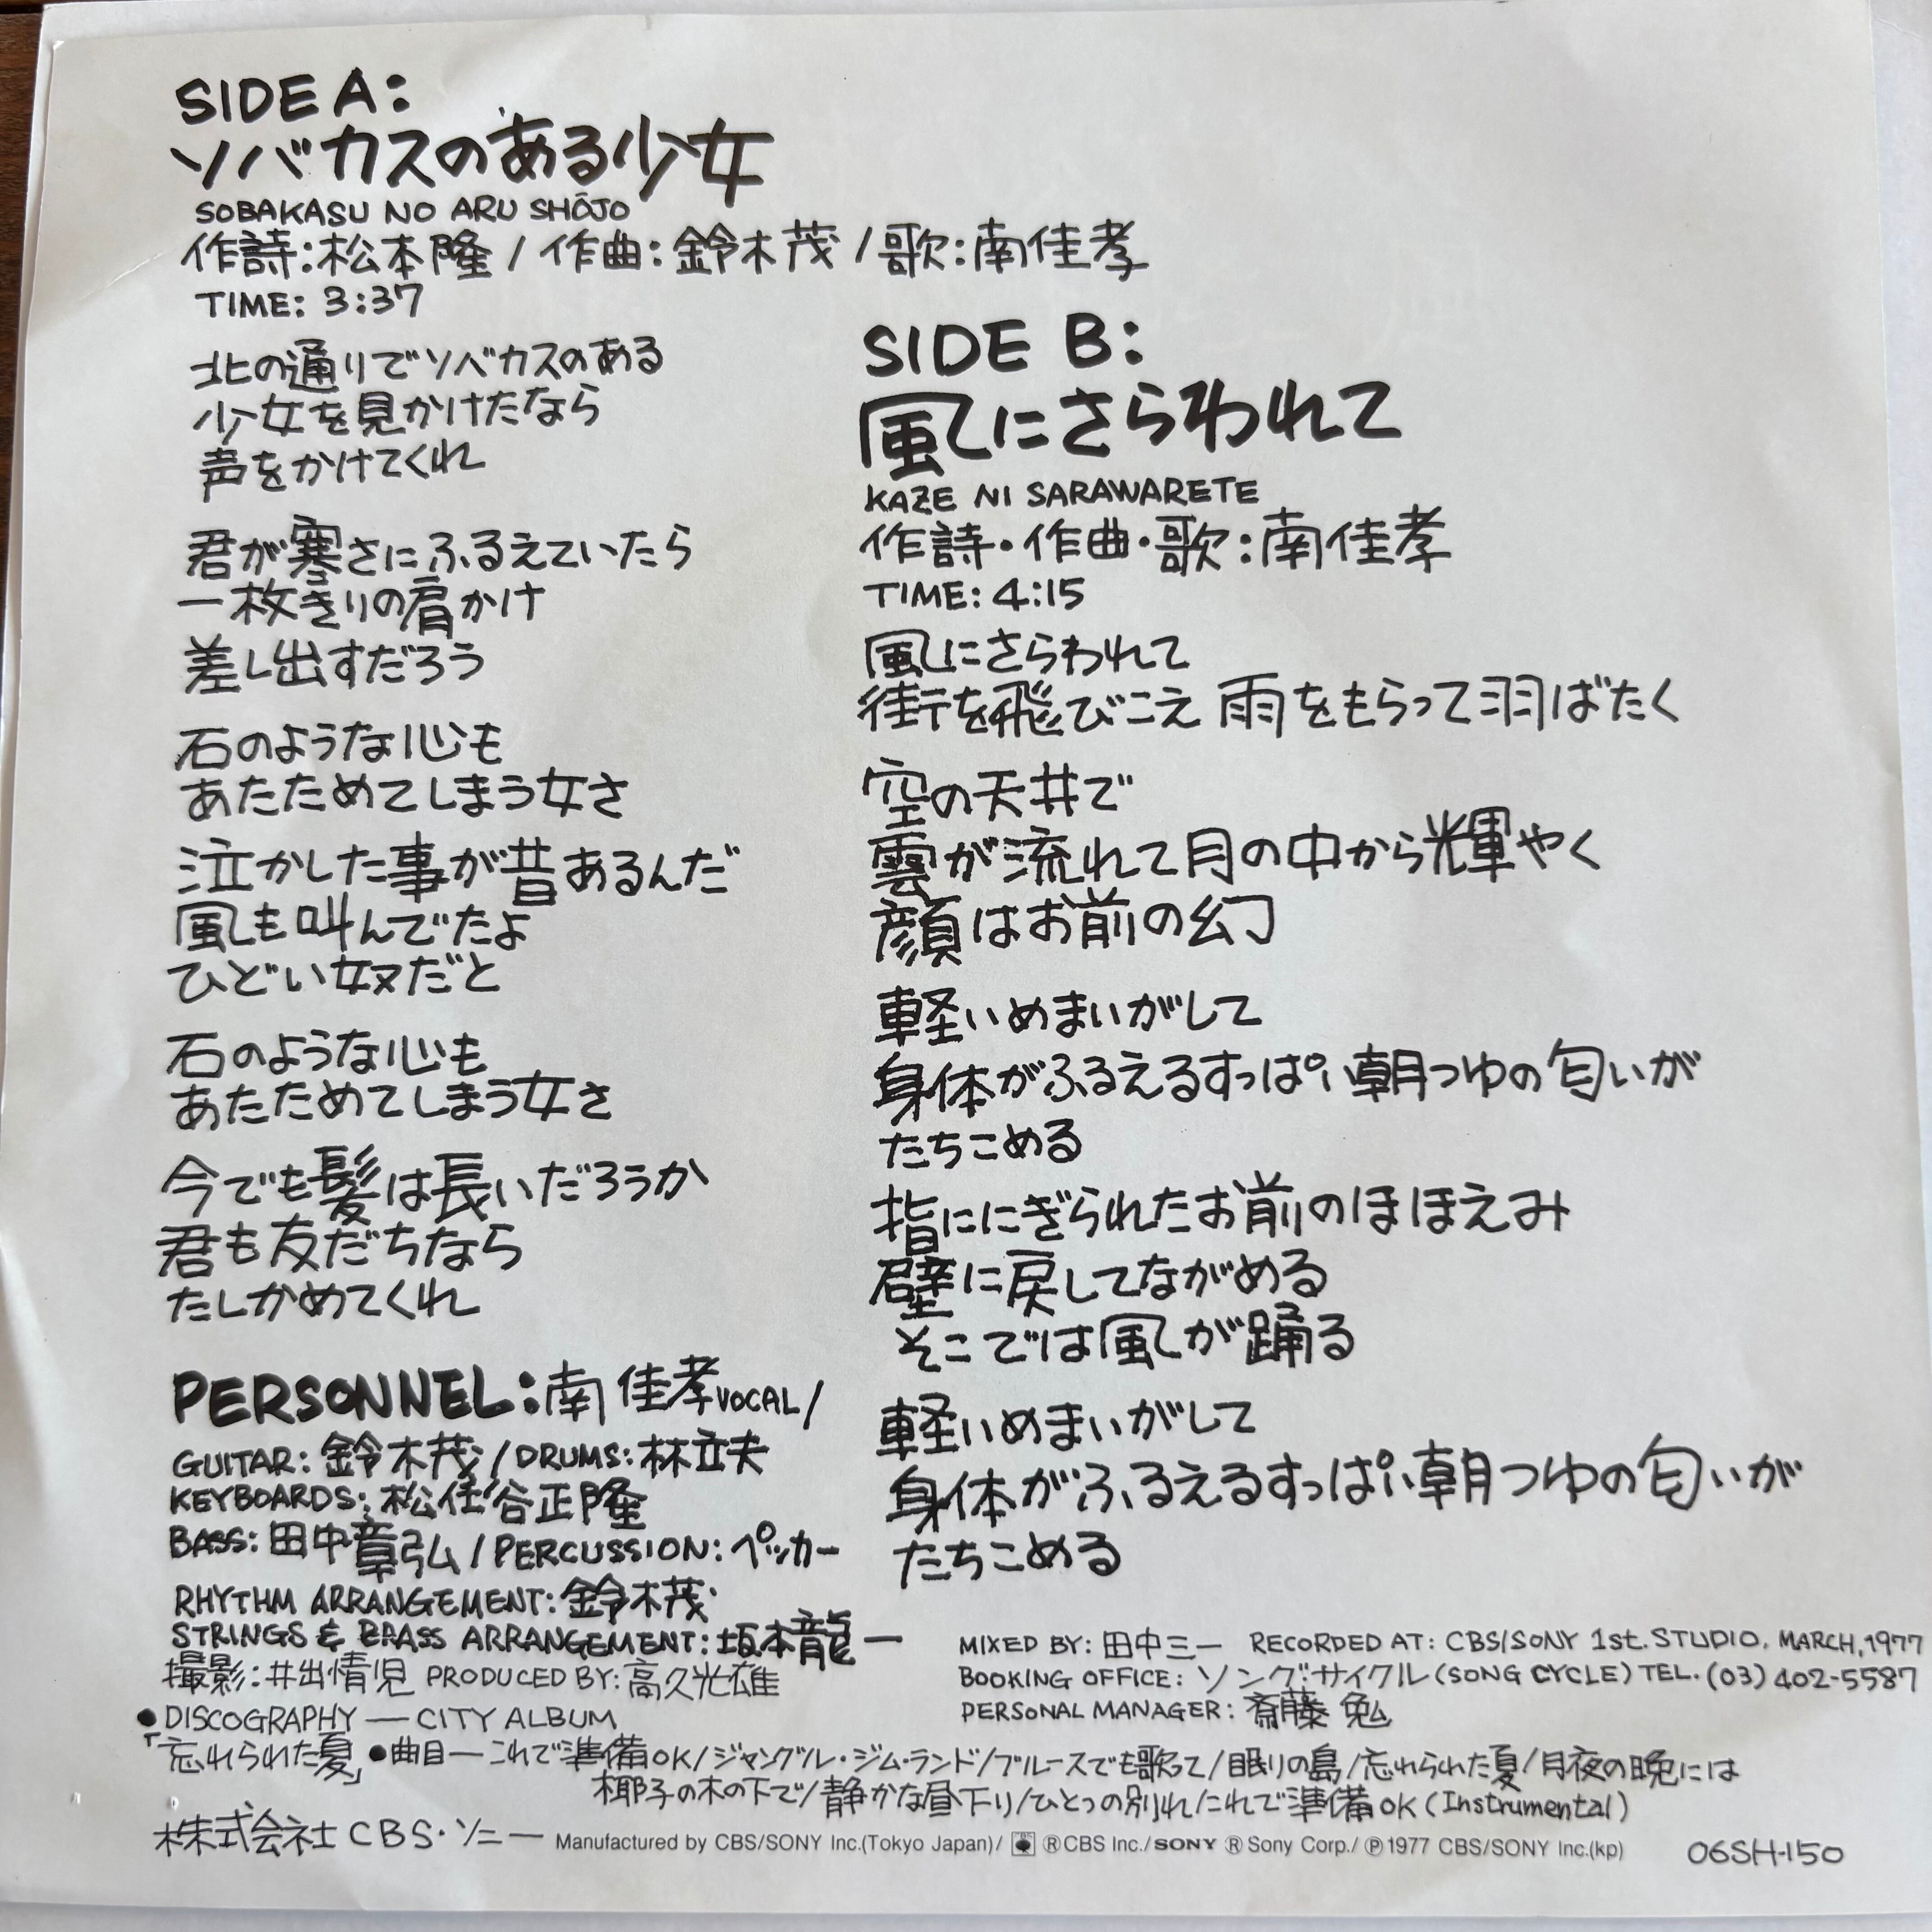 SIDE A:
ソバカスのある少女
SOBAKASU NO ARU SHŌJO
作詩:松本隆/作曲:鈴木茂/歌:南佳孝
TIME: 3:37
北の通りでソバカスのある
少女を見かけたなら
声をかけてくれ
君が寒さにふるえていたら
一枚きりの肩かけ
差し出すだろう
石のような心も
あたためてしまう女さ
泣かした事が昔あるんだ
風も叫んでたよ
ひどい奴だと
石のような心も
あたためてしまう女さ
今でも髪は長いだろうか
君も友だちなら
たしかめてくれ
PERSONNEL:南佳孝VOCAL/
GUITAR:鈴木茂/DRUMS:林立夫
KEYBOARDS:松任谷正隆
BASS:田中章弘/PERCUSSION:ペッカー
RHYTHM ARRANGEMENT:鈴木茂
STRINGS & BRASS ARRANGEMENT:坂本龍一
撮影:井出情児 PRODUCED BY:高久光雄
SIDE B:
風にさらわれて
KAZE NI SARAWARETE
作詩・作曲・歌:南佳孝
TIME: 4:15
風にさらわれて
街を飛びこえ 雨をもらって羽ばたく
空の天井で
雲が流れて月の中から輝やく
顔はお前の幻
軽いめまいがして
身体がふるえるすっぱい朝つゆの匂いが
たちこめる
指ににぎられたお前のほほえみ
壁に戻してながめる
そこでは風が踊る
軽いめまいがして
身体がふるえるすっぱい朝つゆの匂いが
たちこめる
MIXED BY:田中三一 RECORDED AT: CBS/SONY 1st. STUDIO. MARCH,1977
BOOKING OFFICE: ソングサイクル(SONG CYCLE) TEL.(03)402-5587
PERSONAL MANAGER:斎藤勉
●DISCOGRAPHY—CITY ALBUM
「忘れられた夏」●曲目—これで準備OK/ジャングル・ジム・ランド/ブルースでも歌って/眠りの島/忘れられた夏/月夜の晩には
椰子の木の下で/静かな昼下り/ひとつの別れ/これで準備OK(Instrumental)
株式会社CBS・ソニー Manufactured by CBS/SONY Inc.(Tokyo Japan)/ ®CBS Inc./SONY ®Sony Corp./℗1977 CBS/SONY Inc.(kp) 06SH-150